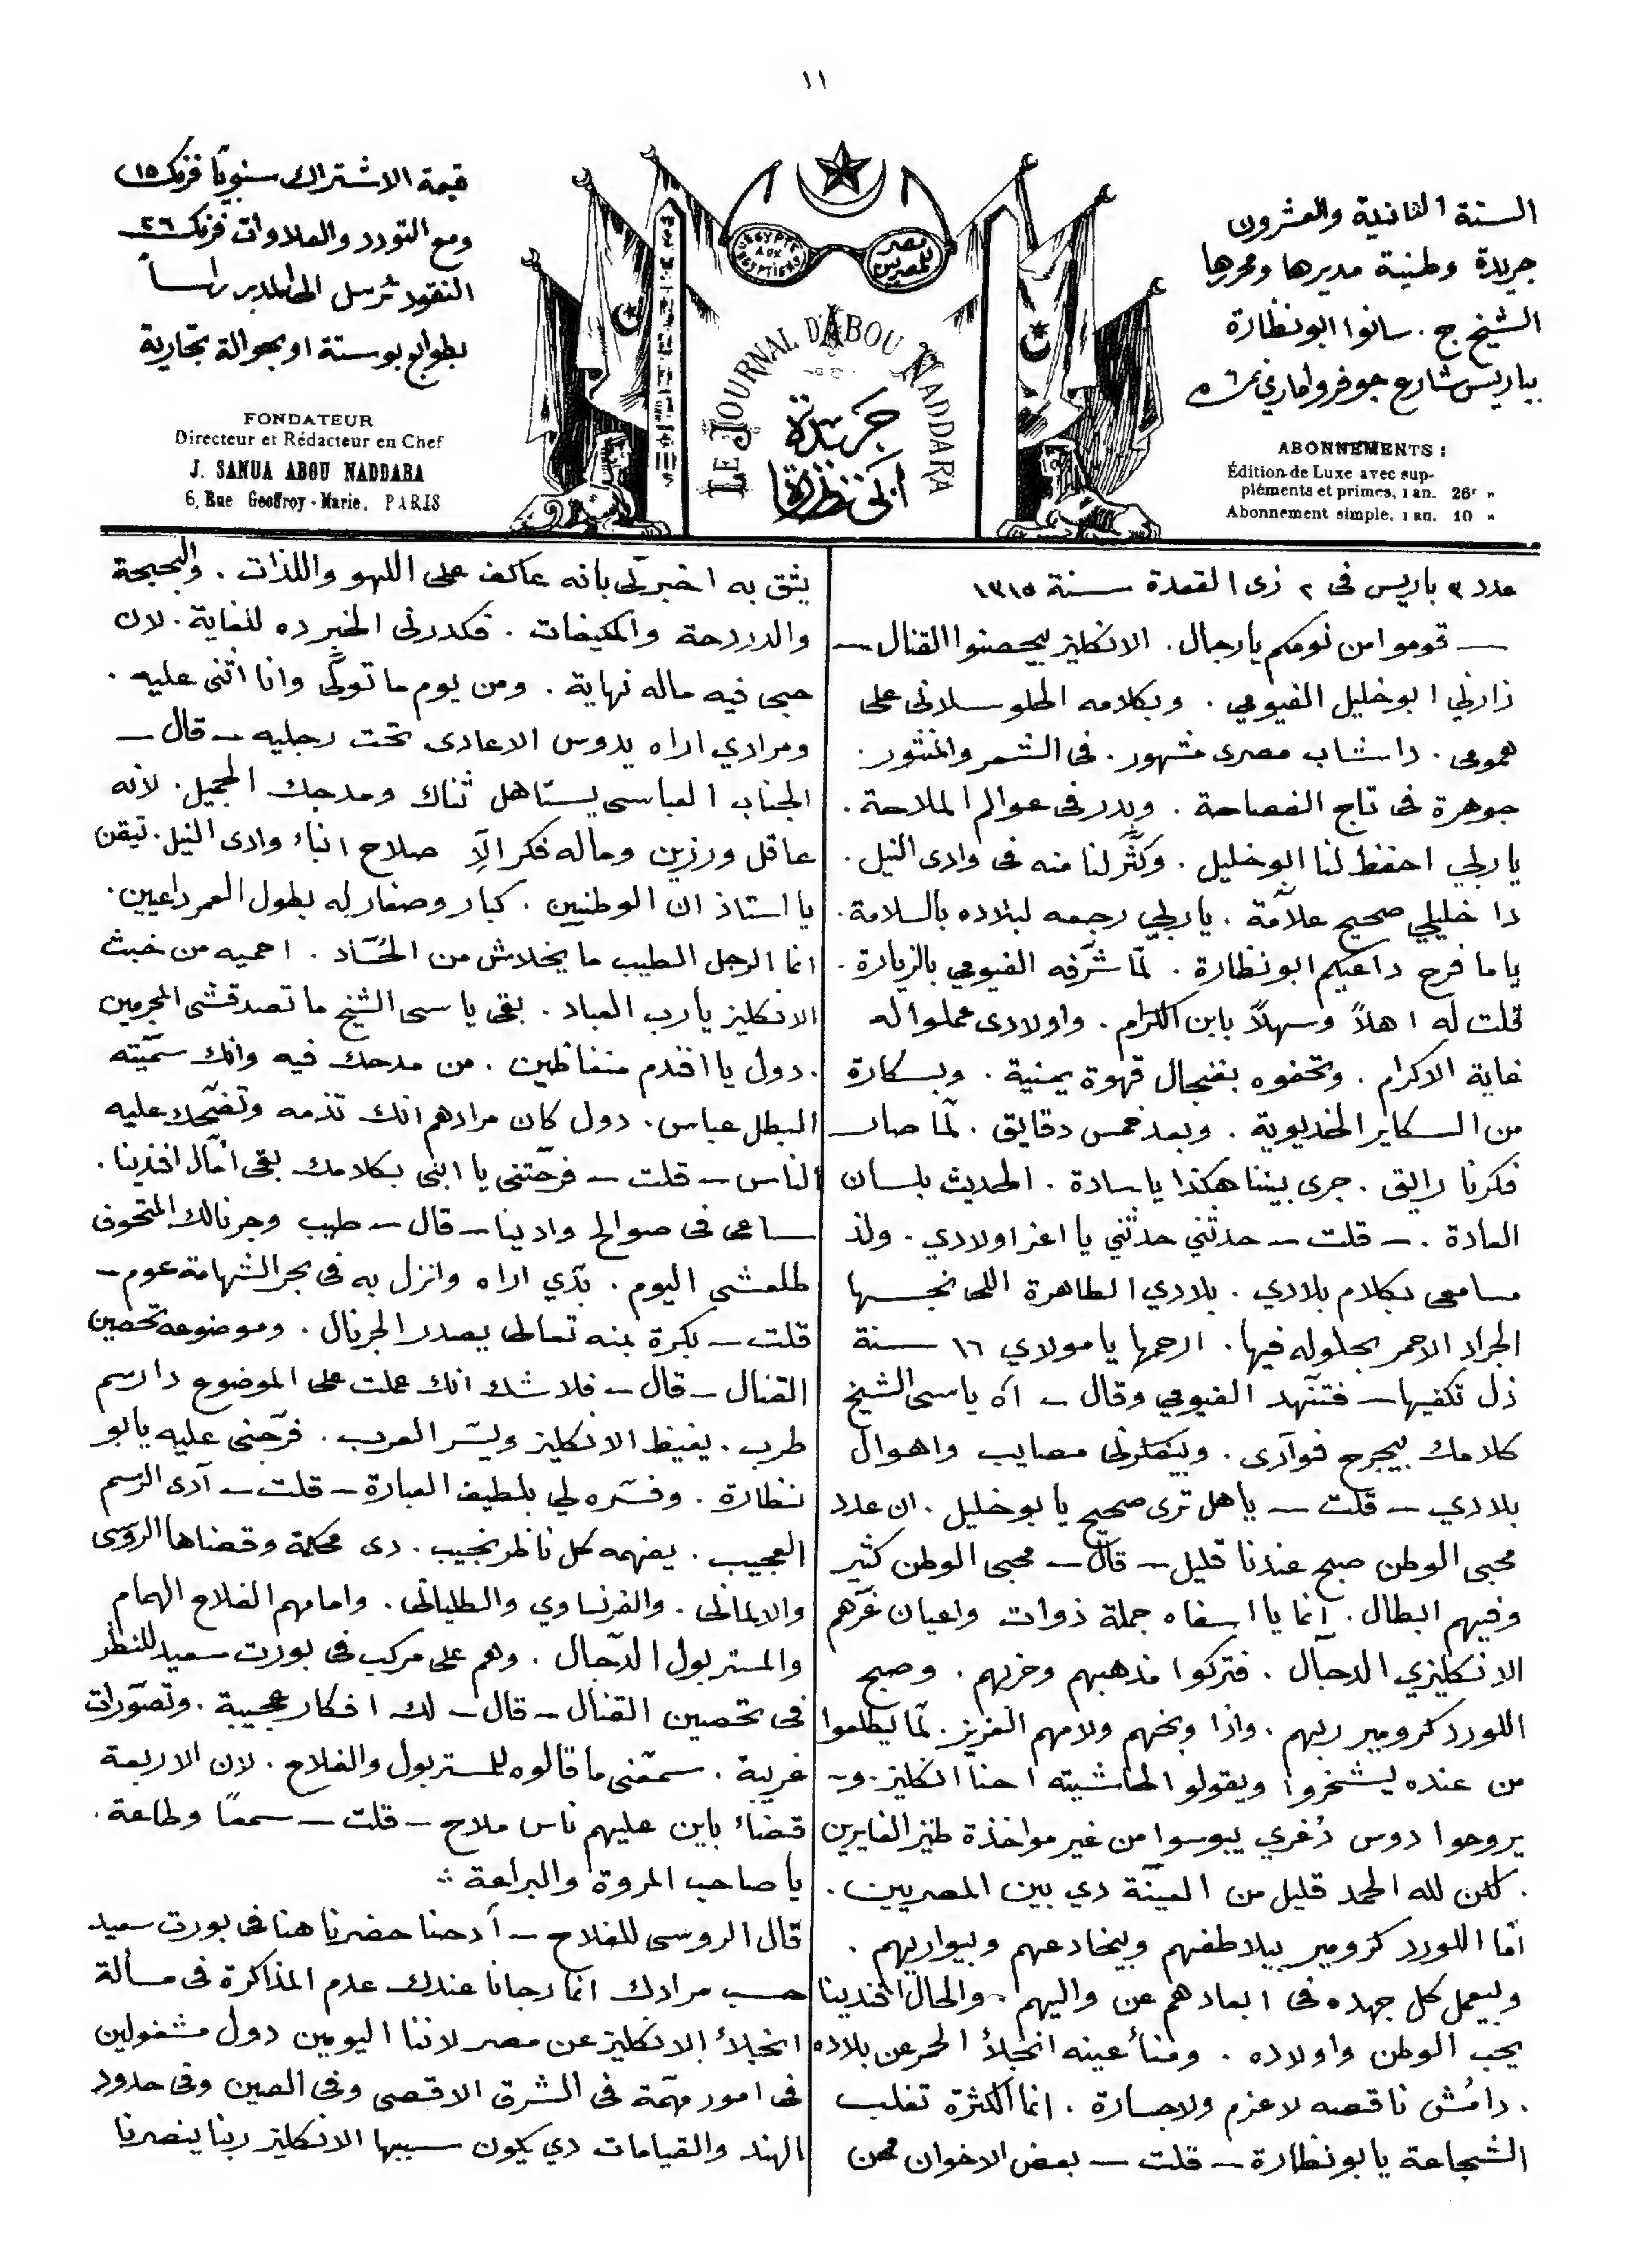 ١١
السنة الثانية والعشرون
جريدة وطنية مديرها ومحررها
الشيخ ج. سانوا ابو نظارة
بباريس شارع جوفروا ماري نمرة ٦
ABONNEMENTS :
Édition de Luxe avec sup-
pléments et primes, 1 an. 26f »
Abonnement simple, 1 an. 10 »
L'EGYPTE AUX EGYPTIENS
مصر للمصريين
LE JOURNAL D'ABOU NADDARA
جريدة
ابي نظارة
قيمة الاشتراك سنوياً فرنك ١٥
ومع التورد والعلاوات فرنك ٢٦
النقود ترسل الى المدير راساً
بطوابع بوستة او بحوالة تجارية
FONDATEUR
Directeur et Rédacteur en Chef
J. SANUA ABOU NADDARA
6, Rue Geoffroy-Marie, PARIS
عدد ٣ باريس فى ٢ ذى القعدة سنة ١٣١٥
— قوموا من نومكم يا رجال. الانكليز بيحصنوا القنال —
زارني ابو خليل الفيومي. وبكلامه الحلو سلانى على
همومى. دا شاب مصرى مشهور. فى الشعر والمنثور.
جوهرة فى تاج الفصاحة. وبدر فى عوالم الملاحة.
يا ربي احفظ لنا ابو خليل. وكثّر لنا منه فى وادى النيل.
دا خليلي صحيح علاّمة. يا ربي رجعه لبلاده بالسلامة.
ياما فرح داعيكم ابو نظارة. لمّا شرّفه الفيومي بالزيارة.
قلت له اهلاً وسهلاً بابن الكرام. واولادى عملوا له
غاية الاكرام. وتحفوه بفنجال قهوة يمنية. وبسكارة
من السكاير الخديوية. وبعد خمس دقايق. لمّا صار
فكرنا رايق. جرى بيننا هكذا يا سادة. الحديث بلسان
العادة. — قلت — حدثني حدثني يا اعز اولادي. ولذ
مسامعى بكلام بلادي. بلادي الطاهرة اللى نجسها
الجراد الاحمر بحلوله فيها. ارحمها يا مولاي ١٦ سنة
ذل تكفيها — فتنّهد الفيومي وقال — آه يا سى الشيخ
كلامك بيجرح فوآدى. وبيفكرنى مصايب واهوال
بلادي — قلت — يا هل ترى صحيح يا بو خليل. ان عدد
محبى الوطن صبح عندنا قليل — قال — محبى الوطن كثير
وفيهم ابطال. انما يا اسفاه جملة ذوات واعيان غرّهم
الانكليزي الدجال. فتركوا مذهبهم وحزبهم. وصبح
اللورد كرومير ربهم. واذا وبخهم ولامهم العزيز. لمّا يطلعوا
من عنده يشخروا ويقولو الحاشيته احنا انكليز. و—
يروحوا دوس دُغري يبوسوا من غير مواخذة طيز الغايرين
. لكن لله الحمد قليل من العينّة دي بين المصريين.
امّا اللورد كرومير بيلاطفهم وبيخادعهم وبيواريهم.
وبيعمل كل جهده فى ابعادهم عن واليهم. والحال افندينا
يحب الوطن واولاده. ومنأ عينه انخلأ الحمر عن بلاده
. دا مُش ناقصه لا عزم ولا جسارة. انما الكثرة تغلب
الشجاعة يا بو نظارة — قلت — بعض الاخوان ممن
يثق به اخبرنى بانه عاكف على اللهو واللذات. والبحبحة
والدردحة والمكيفات. فكدرنى الخبر ده للغاية. لان
حبى فيه ماله نهاية. ومن يوم ما تولّى وانا اثنى عليه.
ومرادي اراه يدوس الاعادى تحت رجليه — قال —
الجناب العباسى يستاهل ثناك ومدحك الجميل. لانه
عاقل ورزين وماله فكر الاّ صلاح ابناء وادى النيل. تيقن
يا استاذ ان الوطنيين. كبار وصغار له بطول العمر داعيين.
انما الرجل الطيب ما يخلاش من الحُسّاد. احميه من خبث
الانكليز يا رب العباد. بقى يا سى الشيخ ما تصدقشى المجرمين
دول يا افندم منغاظين. من مدحك فيه وانك سمّيته
البطل عباس. دول كان مرادهم انك تذمه وتضحّك عليه
الناس — قلت — فرحّتنى يا ابنى بكلامك بقى امّال افندينا.
ساعى فى صوالح وادينا — قال — طيب وجرنالك المتحوف
طلعشى اليوم. بدّي اراه وانزل به فى بحر الشهامة عوم —
قلت — بكرة بمنه تعالى يصدر الجرنال. وموضوعه تحصين
القنال — قال — فلا شك انك عملت على الموضوع دا رسم
طرب. يغيظ الانكليز ويسّر العرب. فرّجنى عليه يا بو
نظارة. وفسّره لي بلطيف العبارة — قلت — آدى الرسم
العجيب. يفهمه كل ناظر نجيب. دى محكمة وقضاها الروسى
والالمانى. والفرنساوي والطليانى. وامامهم الفلاح الهمام
والمستر بول الدّجال. وهم على مركب فى بورت سعيد للنظر
فى تحصين القنال — قال — لك افكار عجيبة. وتصوّرات
غريبة. سمّعنى ما قالوه للمستر بول والفلاح. لان الاربعة
قضاء باين عليهم ناس ملاح — قلت — سمعًا وطاعة.
يا صاحب المروة والبراعة ..
قال الروسى للفلاح — آدحنا حضرنا هنا فى بورت سعيد
حسب مرادك انما رجانا عندك عدم المذاكرة فى مسألة
انخلأ الانكليز عن مصر لاننا اليومين دول مشغولين
فى امور مهمّة فى الشرق الاقصى وفى الصين وفى حدود
الهند والقيامات دي يكون سببها الانكليز ربنا ينصرنا